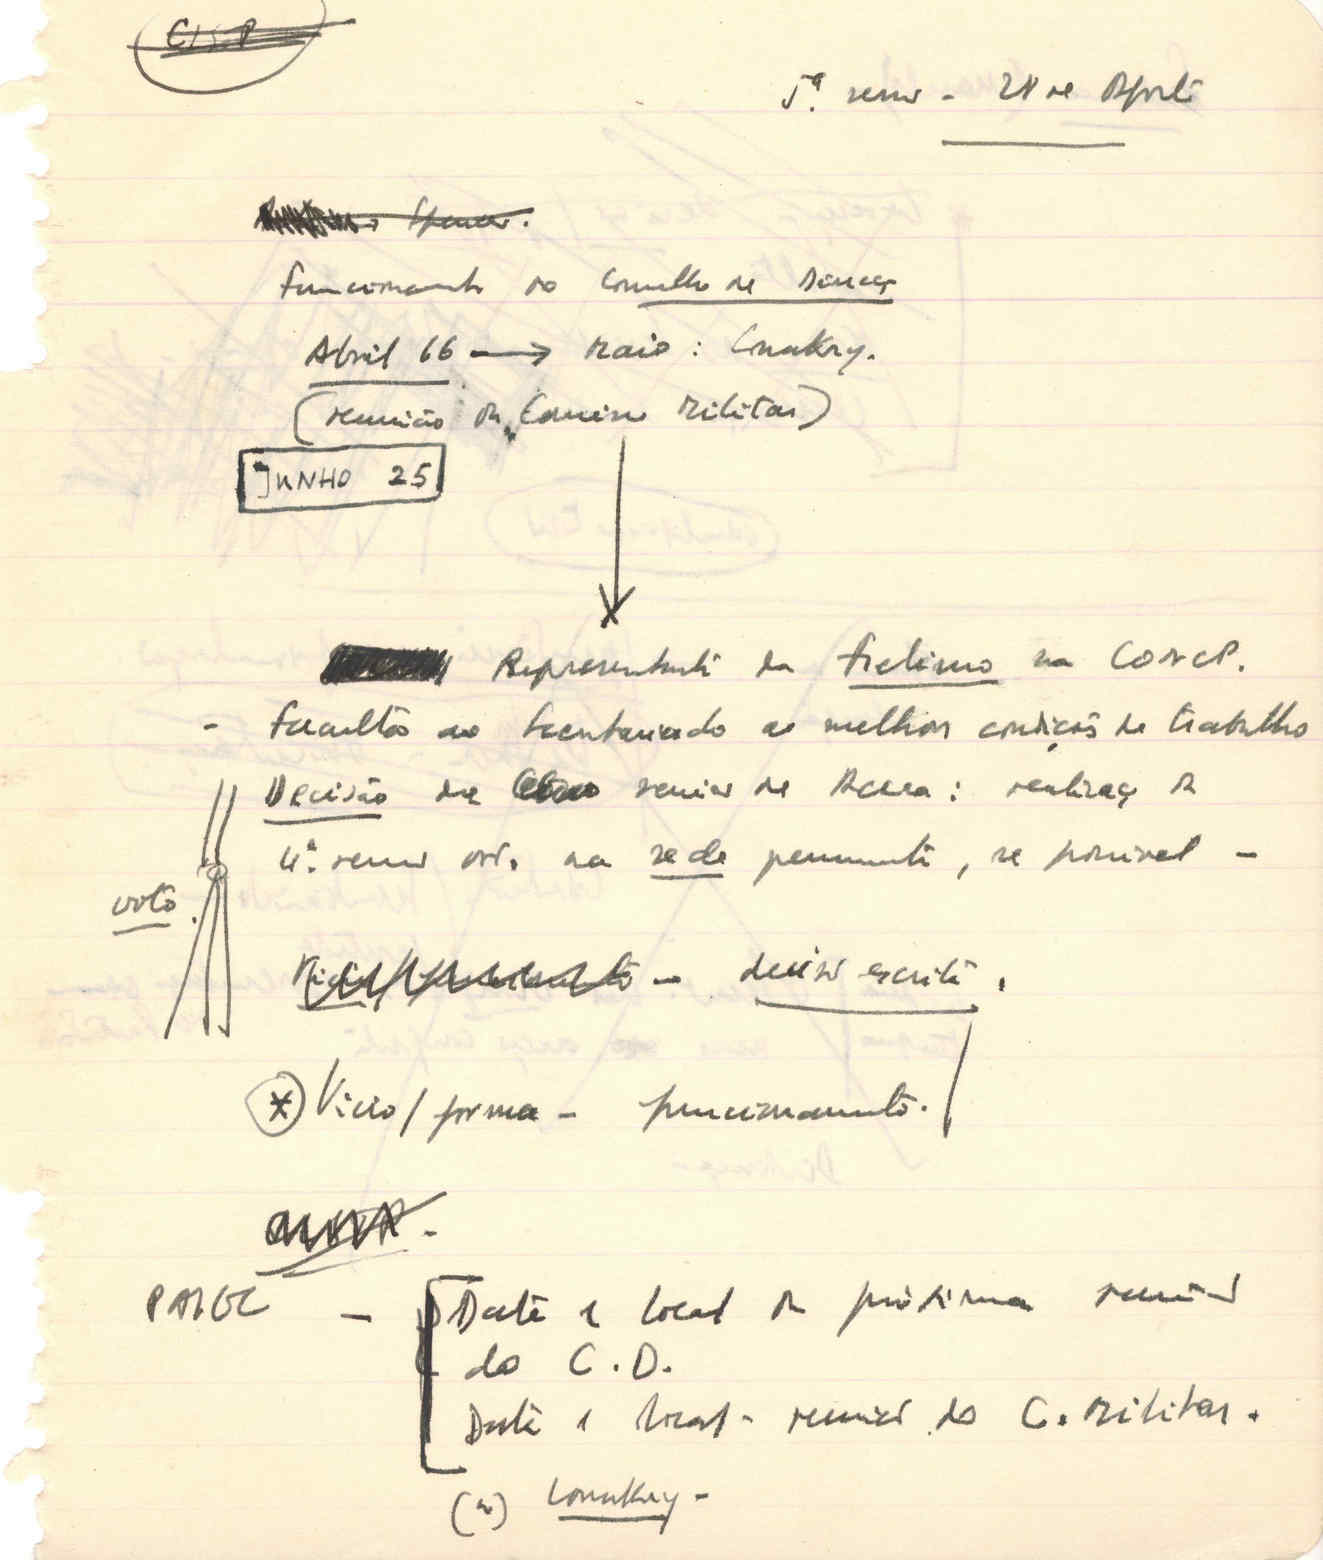 5ª. - 28 de
Funcionamento do Conselho de
Abril 66 → Maio: Conakry.
(reunião da Comissão Militar)
JUNHO 25
Representante da Frelimo na CONCP.
- Facultão ao Secretariado as melhores condições de trabalho
Decisão da reunião de : realização da
4ª. reunião ord. na sede permanente, se possível -
voto.
- decisão escrita.
* Vicio/forma - funcionamento.
PAIGC - Data e local da próxima reunião
do C.D.
Data e local - reunião do C. Militar.
(a) Conakry -